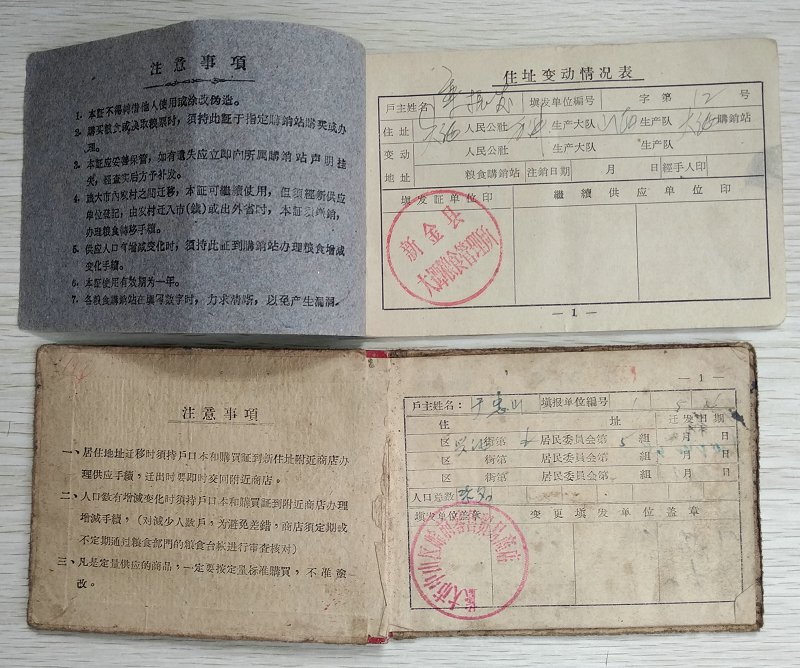 注意事項
1. 本証不得轉借他人使用或涂改伪造。
2. 購买粮食或换取粮票时，須持此証于指定購銷站購买或办
理。
3. 本証应妥善保管，如有遺失应立即向所属購銷站声明挂
失，經查实后方予补发。
4. 旅大市内农村之間迁移，本証可繼續使用，但須經新供应
单位登記，由农村迁入市(鎮)或出外省时，本証須繳銷，
办理粮食轉移手續。
5. 供应人口有增减变化时，須持此証到購銷站办理粮食增减
变化手續。
6. 本証使用有效期为一年。
7. 各粮食購銷站在填写数字时，力求清晰，以免产生漏洞。
住址变动情况表
戶主姓名 填发单位編号 字第 12 号
住址 大 人民公社 生产大队 生产队 購銷站
变动 人民公社 生产大队 生产队
地址 粮食購銷站 注銷日期 月 日 經手人印
填发証单位印 繼續供应单位印
新金县
粮食管理所
— 1 —
注意事項
一、居住地址迁移时須持戶口本和購買証到新住址附近商店办
理供应手續，迁出时要即时交回附近商店。
二、人口数有增减变化时須持戶口本和購買証到附近商店办理
增减手續，(对减少人数戶，为避免差錯，商店須定期或
不定期通过粮食部門的粮食台帳进行审查核对)
三、凡是定量供应的商品，一定要按定量标准購買，不准塗
改。
— 1 —
戶主姓名： 于 山 填报单位編号 1 5
住址 迁发日期
区 街第 居民委員会第 5 組 月 日
区 街第 居民委員会第 組 月 日
区 街第 居民委員会第 組 月 日
人口总数
填发单位盖章 变更填发单位盖章
旅大市中山区